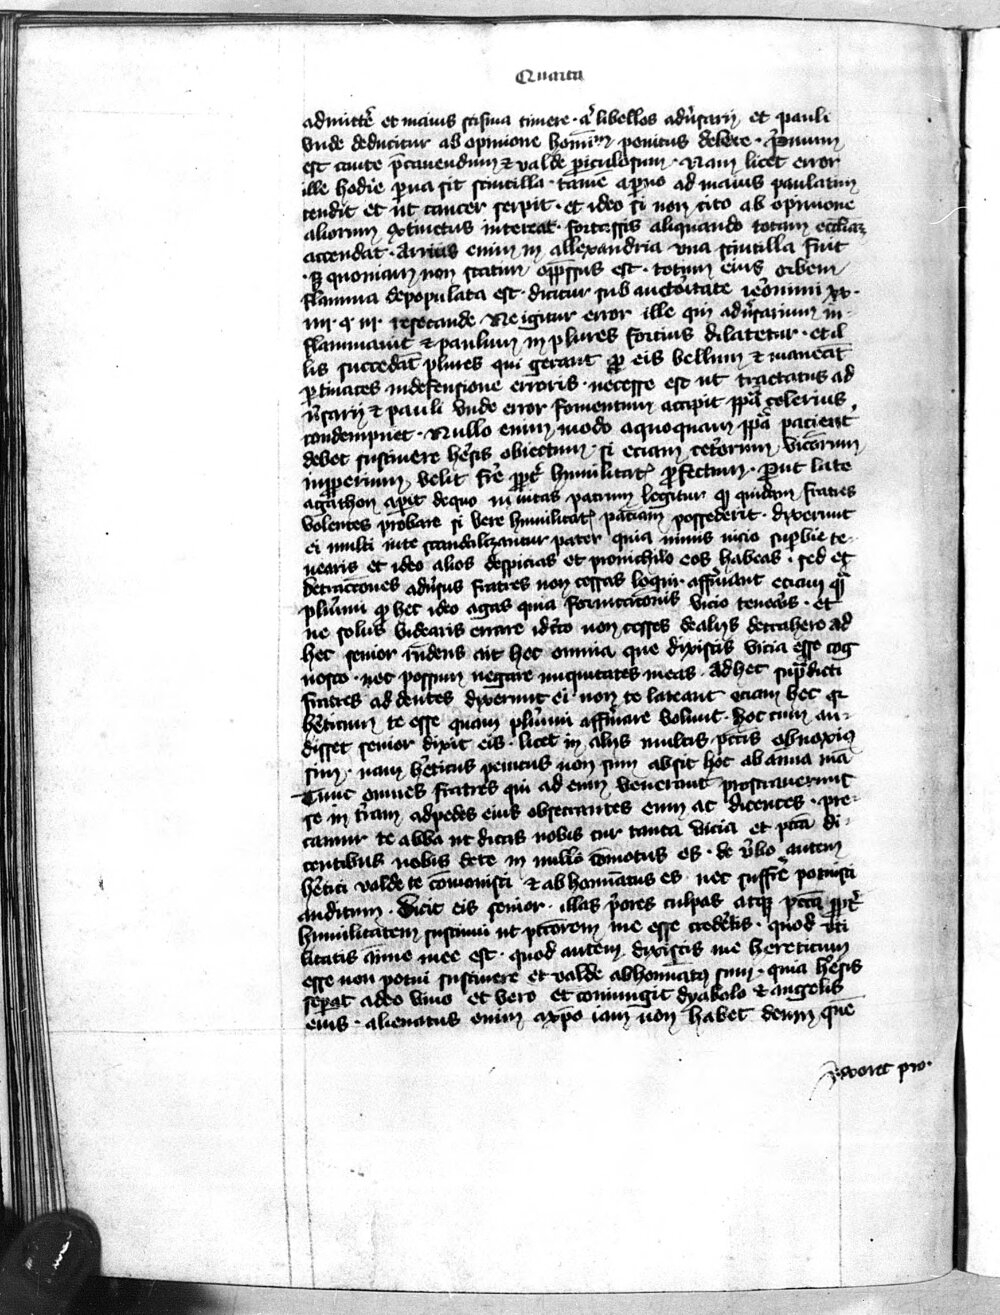 Quarta
admittere et maius scisma timere · quam libellos adversarii et pauli
unde deducitur ab opinione hominum penitus delere · Primum
est caute precavendum et valde periculosum · Nam licet error
ille hodie parva sit scintilla · tamen a parvo ad maius paulatim
tendit et ut cancer serpit · et ideo si non cito ab opinione
aliorum extinctus intereat · fortassis aliquando totam ecclesiam
accendat · Arrius enim in allexandria una scintilla fuit
· sed quoniam non statim oppressus est · totum eius orbem
flamma depopulata est · dicitur sub auctoritate ieronimi xx ·
iiii · q iii · resecande · Ne igitur error ille qui adversarium in-
flammavit et paulum in plures forcius dilatetur · et il
lis succedant plures qui gerant pro eis bellum et maneant
pertinaces in defensione erroris · necesse est ut tractatus ad
versarii et pauli unde error fomentum accipit papa celerius
condempnet · Nullo enim modo a quoquam papa pacienter
debet sustinere heresis obiectum · si eciam ceterorum viciorum
improperium velit ferre propter humilitatis profectum · Prout late
agathon aperit de quo in vitas patrum legitur quod quidam fratres
volentes probare si vere humilitatis pacienciam possederit · dixerunt
ei multi in te scandalizantur pater quia nimis vicio superbie te-
nearis et ideo alios despicias et pro nichilo eos habeas · sed et
detracciones adversus fratres non cessas loqui · affirmant eciam quam
plurimi quod hec ideo agas quia fornicacionis vicio tenearis · et
ne solus videaris errare idcirco non cesses de aliis detrahere ad
hec senior respondens ait hec omnia que dixistis vicia esse cog
nosco · nec possum negare iniquitates meas · ad hec supradicti
fratres addentes dixerunt ei non te lateant eciam hec quia
hereticum te esse quam plurimi affirmare volunt · hoc cum au-
disset senior dixit eis · licet in aliis multis peccatis obnoxius
sim · nam hereticus penitus non sum absit hoc ab anima mea
Tunc omnes fratres qui ad eum venerant prostraverunt
se in terram ad pedes eius obsecrantes eum ac dicentes · pre-
camur te abba ut dicas nobis cur tanta vicia et peccata di-
centibus nobis de te in nullo commotus es · de verbo autem
heretici valde te commovisti et abhominatus es · nec sufferre potuisti
auditum · Dicit eis senior · illas priores culpas atque peccata propter
humilitatem sustinui ut peccatorem me esse crederetis · quod uti
litatis anime mee est · quod autem dixistis me hereticum
esse non potui sustinere et valde abhominatus sum · quia heresis
separat a deo vivo et vero et coniungit dyabolo et angelis
eius · alienatus enim a christo iam non habet deum quem
exoret pro ·